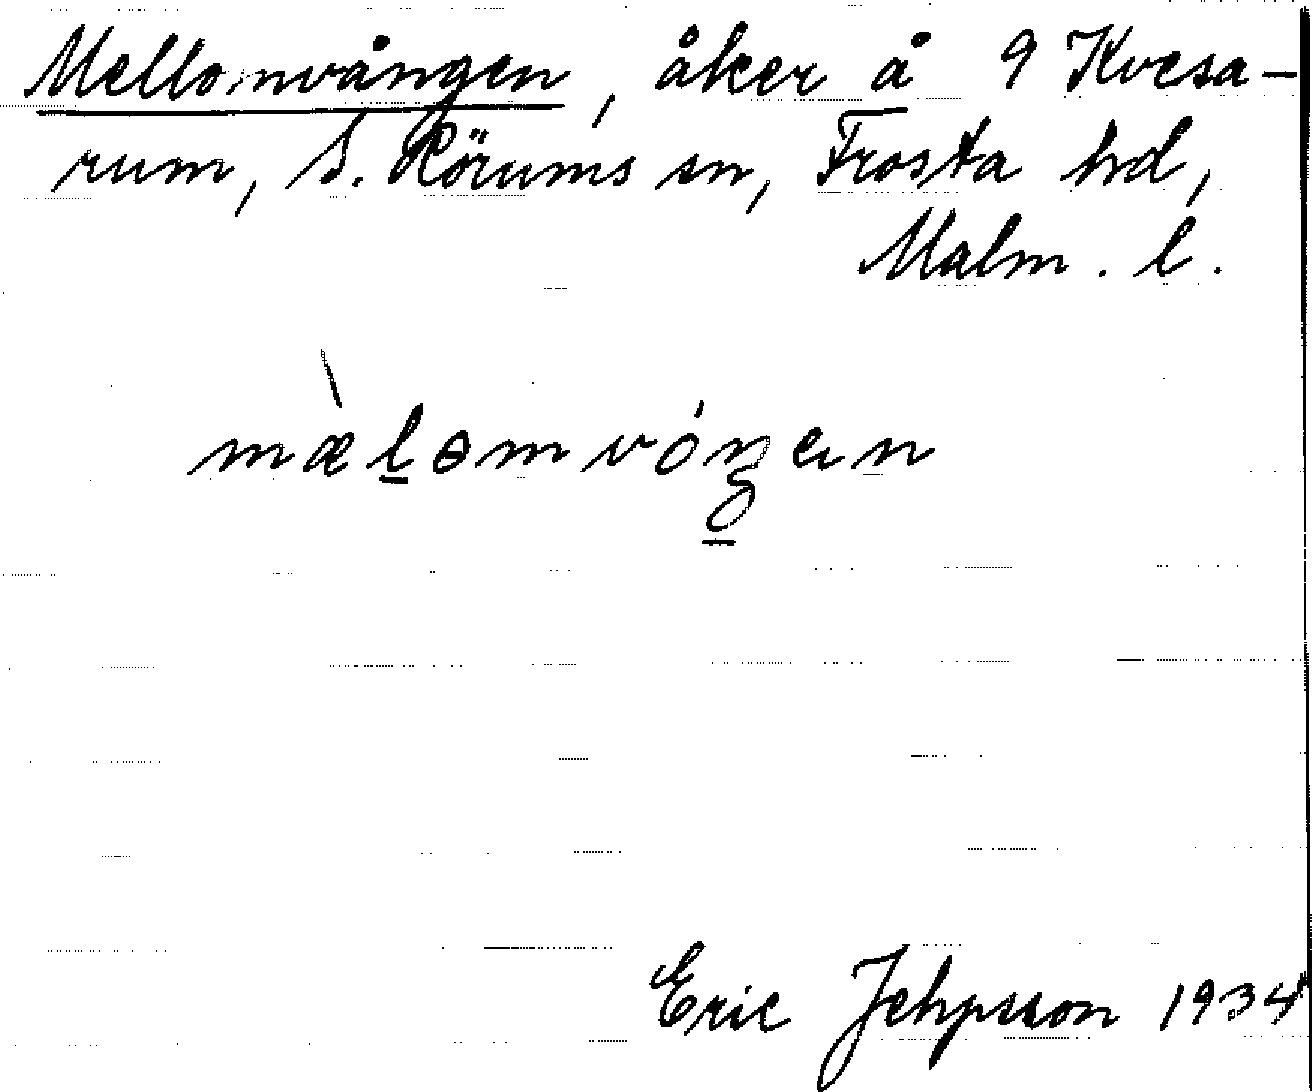 Mellomvången, åker å 9 Kvesa-
rum, S. Rörums sn, Frosta hd,
Malm. l.
mæ̀lɵmvóŋen
Eric Jehpsson 1934